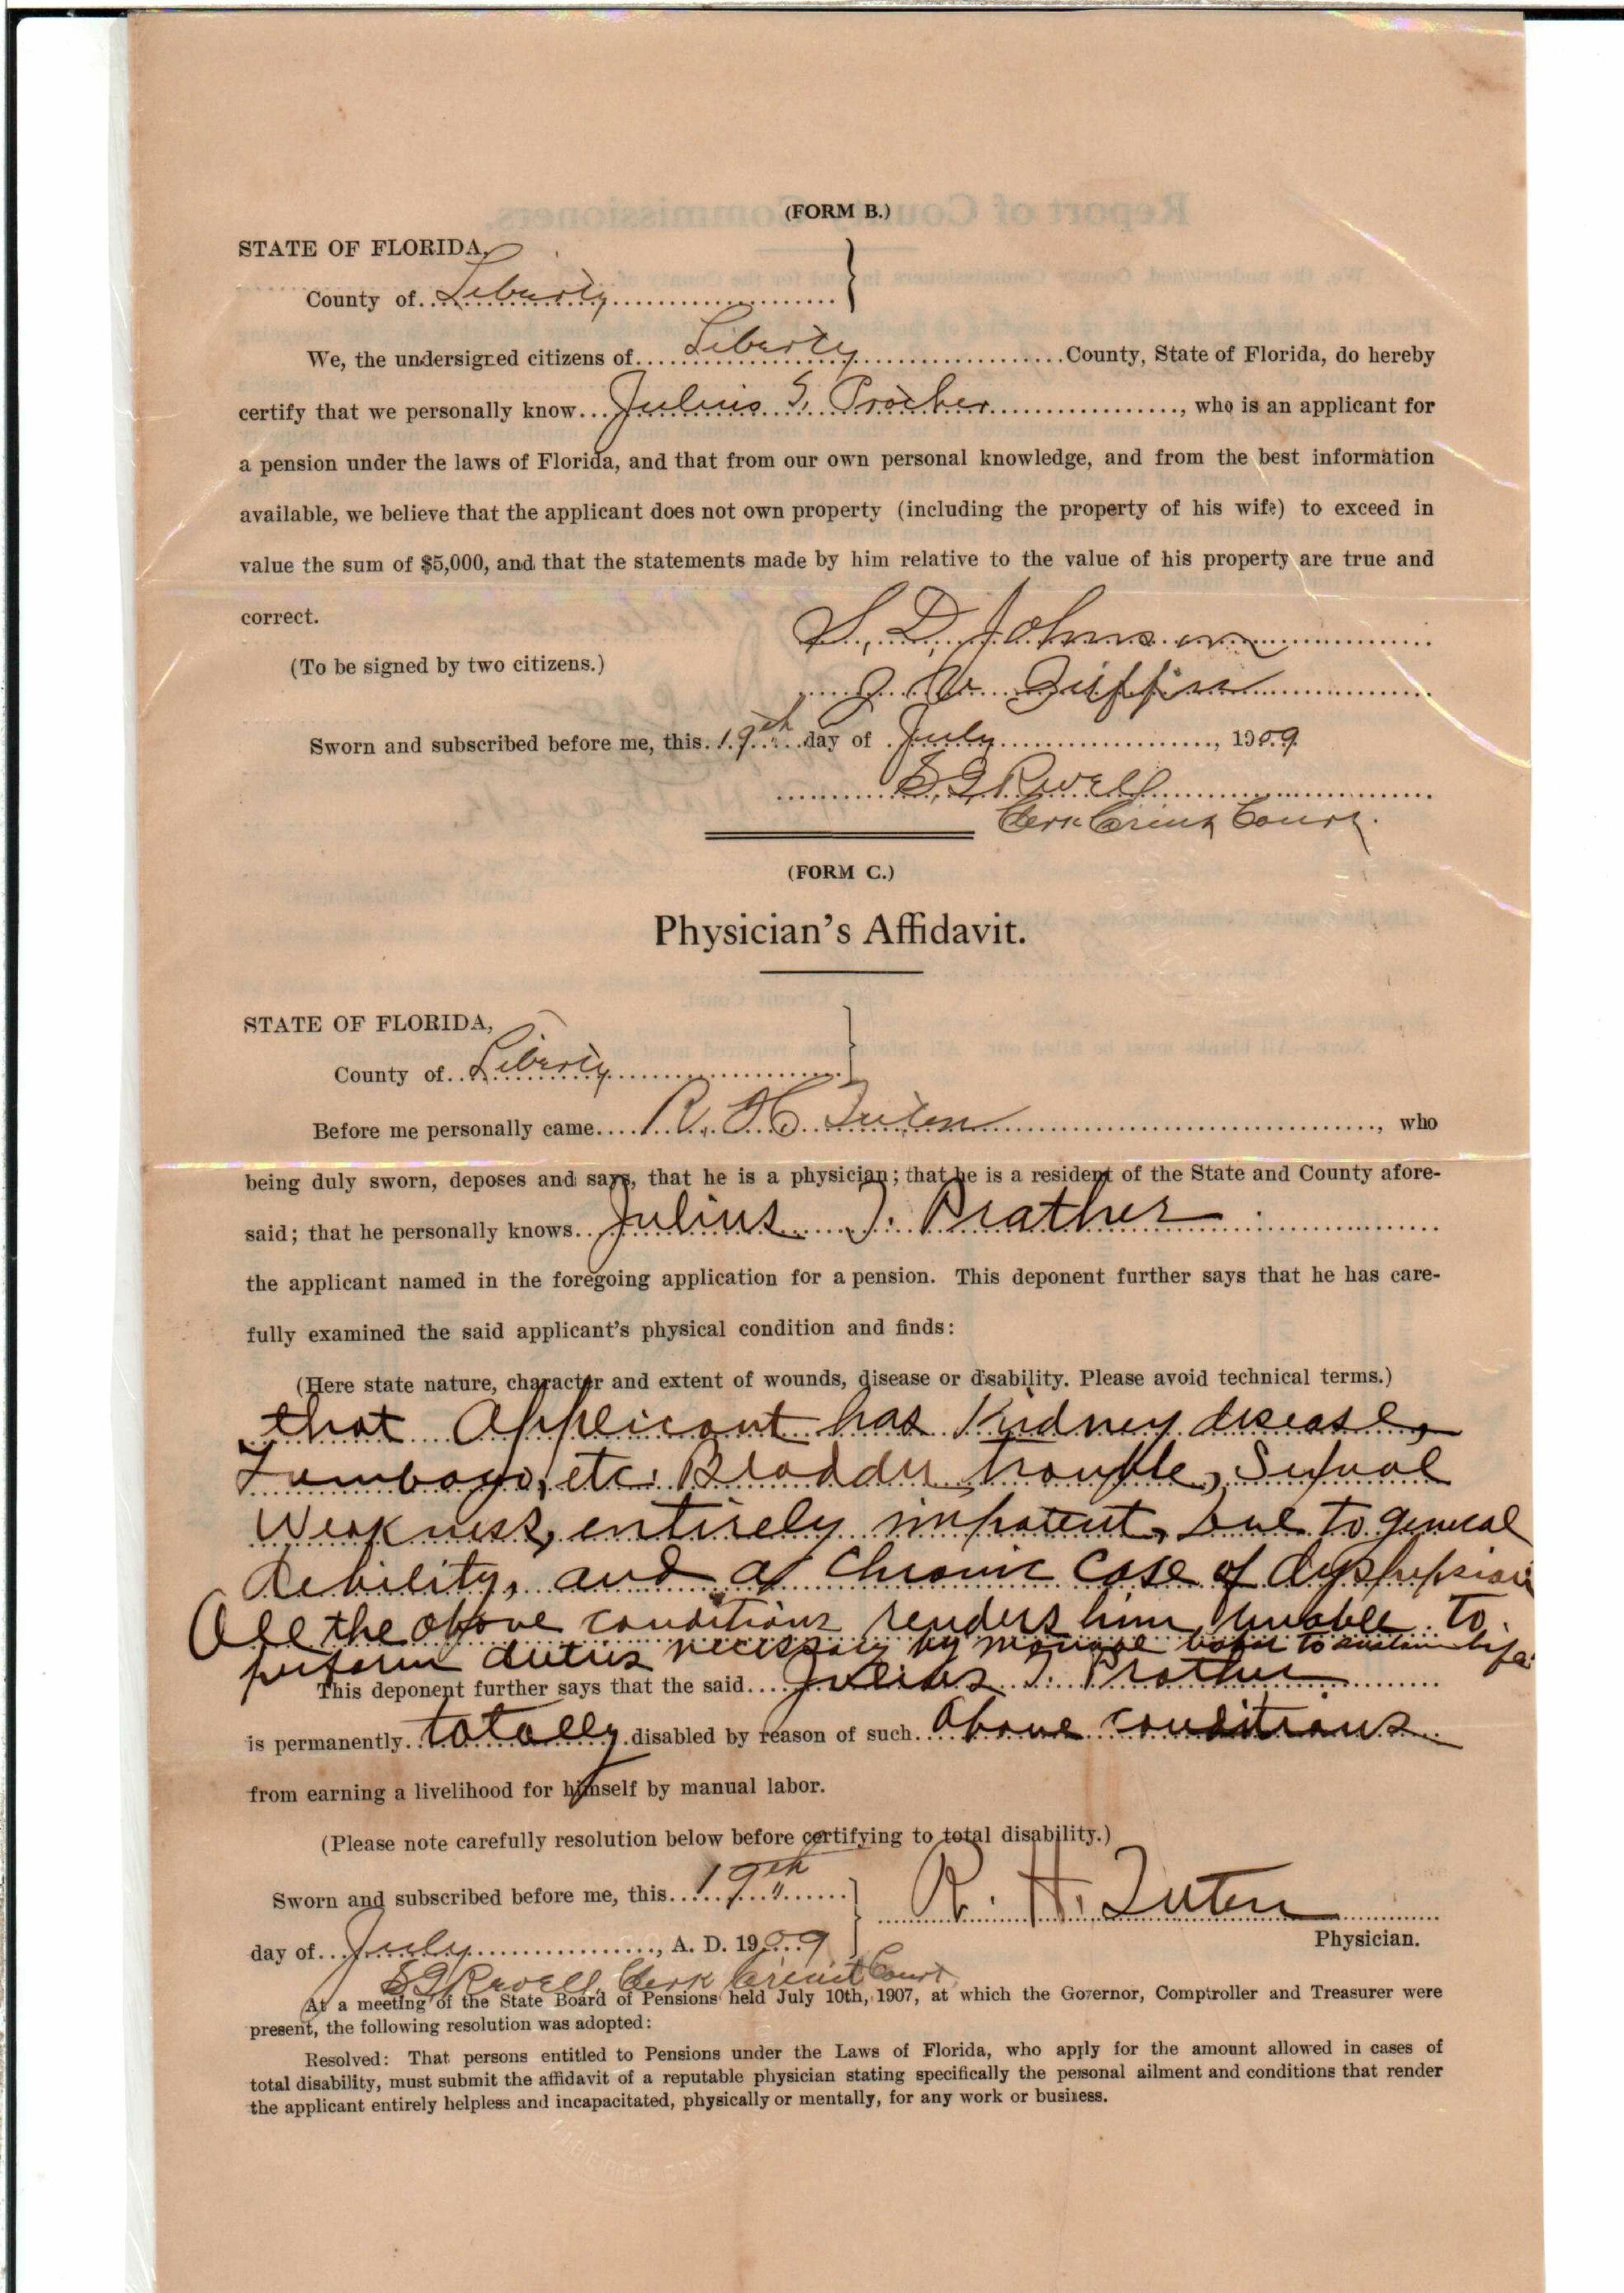 (FORM B.)
STATE OF FLORIDA,
County of Liberty
We, the undersigned citizens of Liberty County, State of Florida, do hereby
certify that we personally know Julius T. Prather, who is an applicant for
a pension under the laws of Florida, and that from our own personal knowledge, and from the best information
available, we believe that the applicant does not own property (including the property of his wife) to exceed in
value the sum of $5,000, and that the statements made by him relative to the value of his property are true and
correct.
S. D. Johnson
(To be signed by two citizens.)
J. W.
Sworn and subscribed before me, this 19th day of July, 1909
Revell
Clerk Circuit Court.
(FORM C.)
Physician's Affidavit.
STATE OF FLORIDA,
County of Liberty
Before me personally came R. H. Tuten, who
being duly sworn, deposes and says, that he is a physician; that he is a resident of the State and County afore-
said; that he personally knows Julius T. Prather
the applicant named in the foregoing application for a pension. This deponent further says that he has care-
fully examined the said applicant's physical condition and finds:
(Here state nature, character and extent of wounds, disease or disability. Please avoid technical terms.)
that Applicant has Kidney disease,
Lumbago, etc. Bladder trouble, Sexual
Weakness, entirely impotent, due to general
debility, and a Chronic Case of dyspepsia
All the above conditions renders him unable to
perform duties necessary by manual labor to sustain life.
This deponent further says that the said Julius T. Prather
is permanently totally disabled by reason of such above conditions
from earning a livelihood for himself by manual labor.
(Please note carefully resolution below before certifying to total disability.)
Sworn and subscribed before me, this 19th
R. H. Tuten
day of July, A. D. 1909
Physician.
Revell, Clerk Circuit Court
At a meeting of the State Board of Pensions held July 10th, 1907, at which the Governor, Comptroller and Treasurer were
present, the following resolution was adopted:
Resolved: That persons entitled to Pensions under the Laws of Florida, who apply for the amount allowed in cases of
total disability, must submit the affidavit of a reputable physician stating specifically the personal ailment and conditions that render
the applicant entirely helpless and incapacitated, physically or mentally, for any work or business.